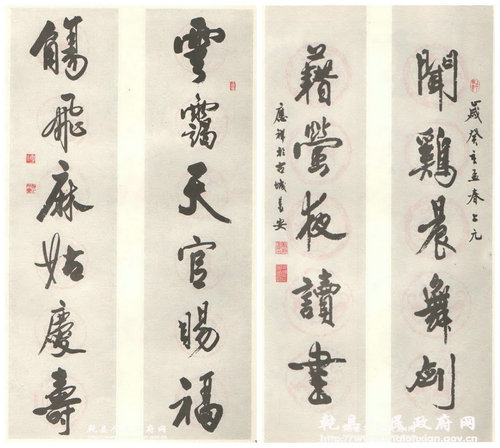 雲靄天官賜福
觴飛麻姑慶壽
歲癸孟春上元
聞鷄晨舞劍
藉螢夜讀書
應祥於古城長安
乾县人民政府网
乾县人民政府网